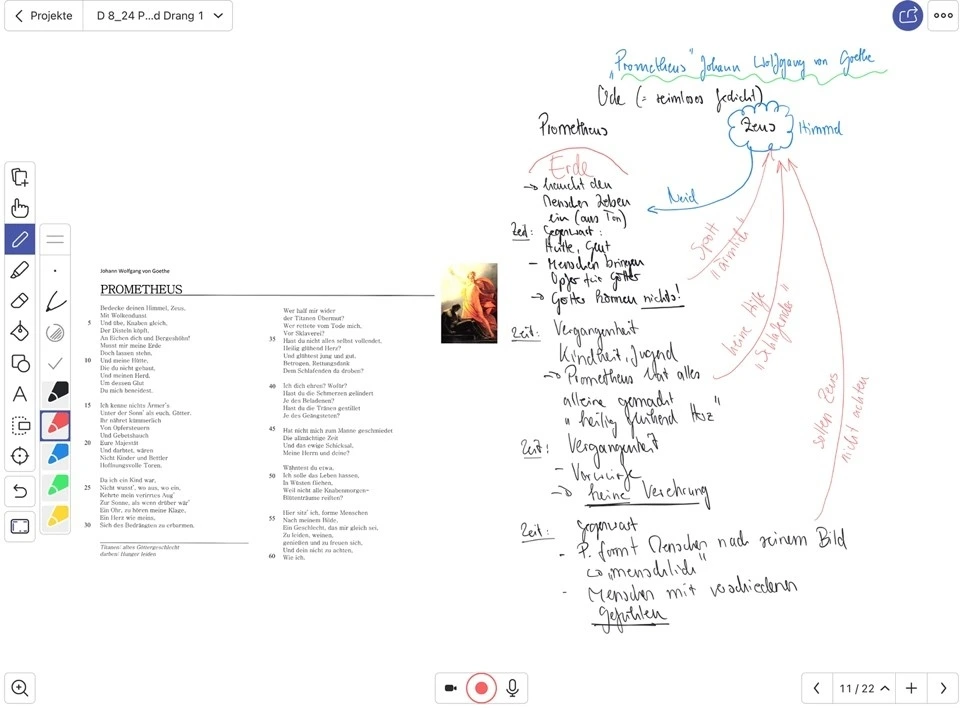 Projekte
D 8_24 P...d Drang 1
"Prometheus" Johann Wolfgang von Goethe
Ode (= reimloses Gedicht)
Prometheus
Zeus
Himmel
Erde
→ haucht den
Menschen Leben
ein (aus Ton)
Neid
Zeit: Gegenwart:
Hütte, Glut
- Menschen bringen
Opfer für Götter
→ Götter können nichts!
Spott
"ärmlich"
Zeit: Vergangenheit
Kindheit, Jugend
→ Prometheus hat alles
alleine gemacht
"heilig glühend Herz"
keine Hilfe
"Schlafender"
Zeit: Vergangenheit
- Vorwürfe
→ keine Verehrung
Zeit: Gegenwart
- P. formt Menschen nach seinem Bild
"menschlich"
- Menschen mit verschiedenen
Gefühlen
sollen Zeus
nicht achten
Johann Wolfgang von Goethe
PROMETHEUS
Bedecke deinen Himmel, Zeus,
Mit Wolkendunst
5 Und übe, Knaben gleich,
Der Disteln köpft,
An Eichen dich und Bergeshöhn!
Musst mir meine Erde
Doch lassen stehn,
10 Und meine Hütte,
Die du nicht gebaut,
Und meinen Herd,
Um dessen Glut
Du mich beneidest.
15 Ich kenne nichts Ärmer's
Unter der Sonn' als euch, Götter.
Ihr nähret kümmerlich
Von Opfersteuern
Und Gebetshauch
20 Eure Majestät
Und darbtet, wären
Nicht Kinder und Bettler
Hoffnungsvolle Toren.
Da ich ein Kind war,
25 Nicht wusst', wo aus, wo ein,
Kehrte mein verirrtes Aug'
Zur Sonne, als wenn drüber wär'
Ein Ohr, zu hören meine Klage,
Ein Herz wie meins,
30 Sich des Bedrängten zu erbarmen.
Titanen: altes Göttergeschlecht
darben: Hunger leiden
Wer half mir wider
der Titanen Übermut?
Wer rettete vom Tode mich,
Vor Sklaverei?
35 Hast du nicht alles selbst vollendet,
Heilig glühend Herz?
Und glühtest jung und gut,
Betrogen, Rettungsdank
Dem Schlafenden da droben?
40 Ich dich ehren? Wofür?
Hast du die Schmerzen gelindert
Je des Beladenen?
Hast du die Tränen gestillet
Je des Geängsteten?
45 Hat nicht mich zum Manne geschmiedet
Die allmächtige Zeit
Und das ewige Schicksal,
Meine Herrn und deine?
Wähntest du etwa,
50 Ich solle das Leben hassen,
In Wüsten fliehen,
Weil nicht alle Knabenmorgen-
Blütenträume reiften?
Hier sitz' ich, forme Menschen
55 Nach meinem Bilde,
Ein Geschlecht, das mir gleich sei,
Zu leiden, weinen,
genießen und zu freuen sich,
Und dein nicht zu achten,
60 Wie ich.
11 / 22